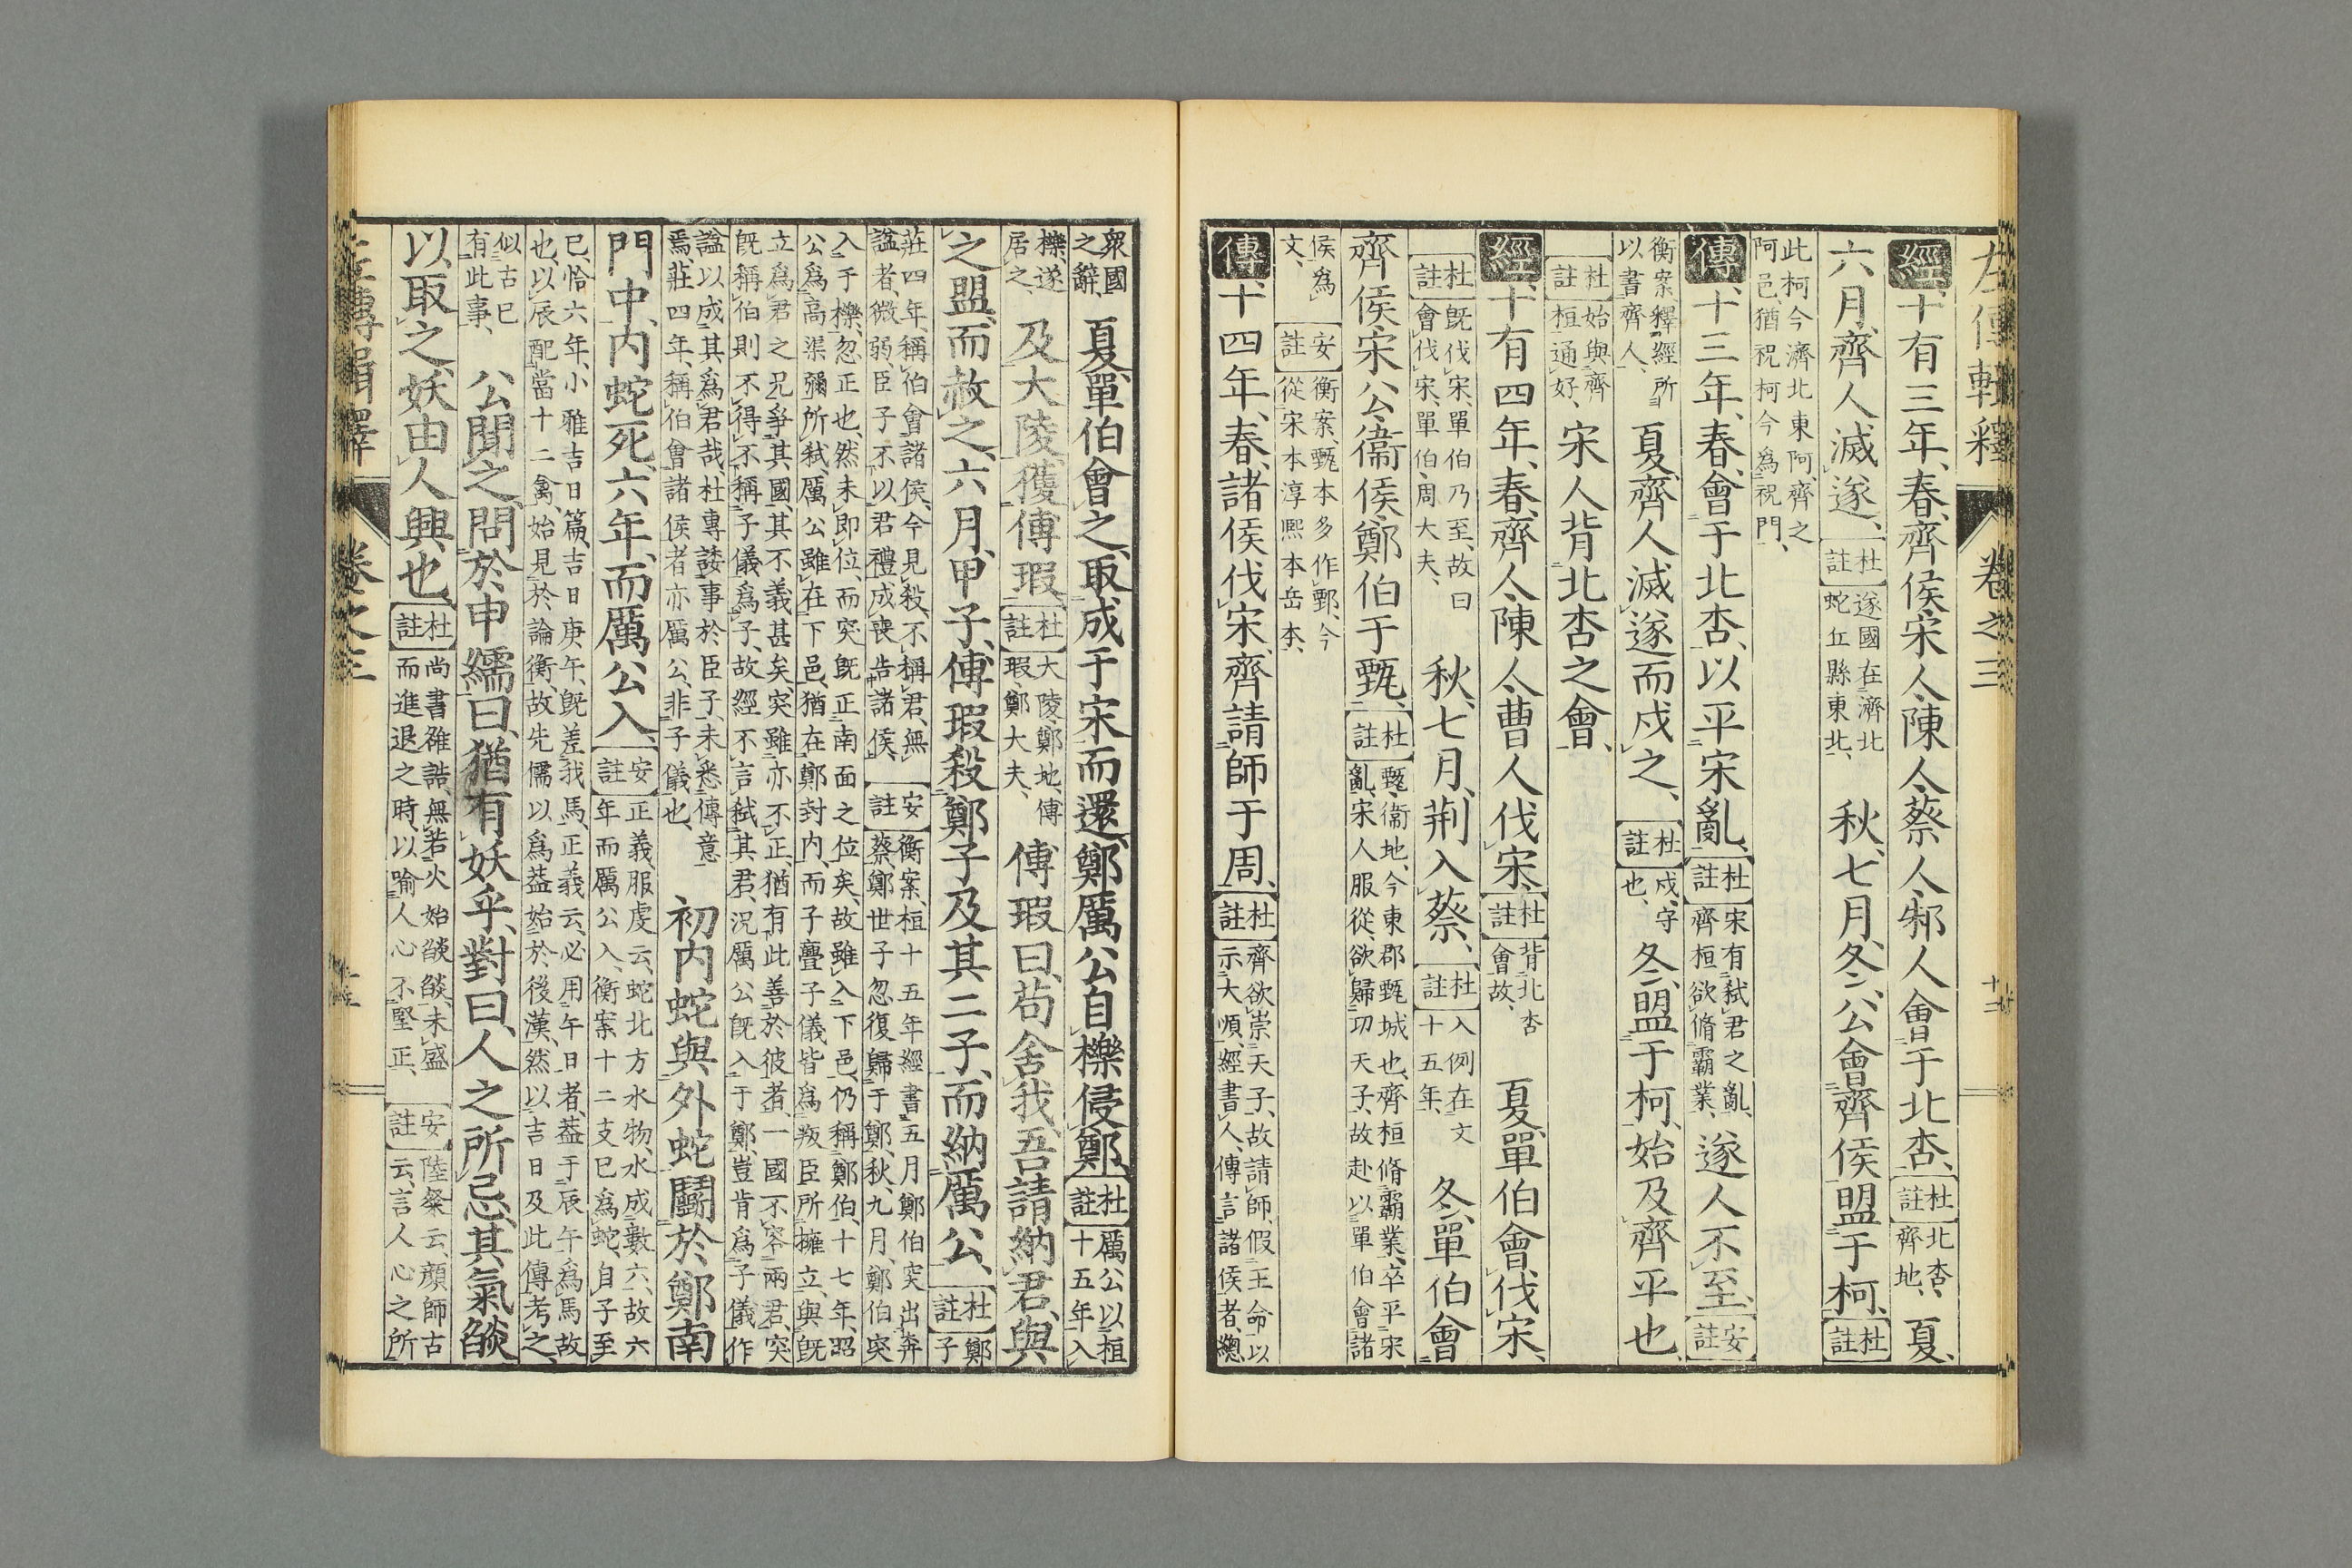 左傳輯釋 卷之三 十二
經十有三年、春、齊侯、宋人、陳人、蔡人、邾人會于北杏、杜註北杏、齊地、夏、
六月、齊人滅遂、杜註遂國在濟北蛇丘縣東北、秋、七月、冬、公會齊侯盟于柯、杜註
此柯今濟北東阿、齊之阿邑、猶祝柯今爲祝門、
傳十三年、春、會于北杏、以平宋亂、杜註宋有弒君之亂、齊桓欲脩霸業、遂人不至、安註
衡案、釋經所以書齊人、夏、齊人滅遂而戍之、杜註戍、守也、冬、盟于柯、始及齊平也、
杜註始與齊桓通好、宋人背北杏之會、
經十有四年、春、齊人、陳人、曹人伐宋、杜註背北杏會故、夏、單伯會伐宋、
杜註既伐宋、單伯乃至、故曰會伐宋、單伯、周大夫、秋、七月、荊入蔡、杜註入例在文十五年、冬、單伯會
齊侯、宋公、衞侯、鄭伯于甄、杜註甄、衞地、今東郡甄城也、齊桓脩霸業、卒平宋亂、宋人服從、欲歸功天子、故赴以單伯會諸
侯爲文、安註衡案、甄本多作鄄、今從宋本淳熙本岳本、
傳十四年、春、諸侯伐宋、齊請師于周、杜註齊欲崇天子、故請師、假王命以示大順、經書人、傳言諸侯者、總
衆國之辭、夏、單伯會之、取成于宋而還、鄭厲公自櫟侵鄭、杜註厲公以桓十五年入
櫟、遂居之、及大陵、獲傅瑕、杜註大陵、鄭地、傅瑕、鄭大夫、傅瑕曰、苟舍我、吾請納君、與
之盟、而赦之、六月、甲子、傅瑕殺鄭子及其二子、而納厲公、杜註鄭子
莊四年、稱伯會諸侯、今見殺、不稱君、無諡者、微弱、臣子不以君禮成喪告諸侯、安註衡案、桓十五年經書五月鄭伯突出奔蔡、鄭世子忽復歸于鄭、秋、九月、鄭伯突
入于櫟、忽正也、然未即位、而突既正南面之位矣、故雖入下邑、仍稱鄭伯、十七年、昭公爲高渠彌所弒、厲公雖在下邑、猶在鄭封內、而子亹子儀、皆爲叛臣所擁立、與既
立爲君之兄爭其國、其不義甚矣、突雖亦不正、猶有此善於彼者、一國不容兩君、突既稱伯、則不得不稱子儀爲子、故經不言弒其君、況厲公既入于鄭、豈肯爲子儀作
諡以成其爲君哉、杜專諉事於臣子、未悉傳意焉、莊四年、稱伯會諸侯者、亦厲公、非子儀也、初內蛇與外蛇鬭於鄭南
門中、內蛇死、六年、而厲公入、安註正義服虔云、蛇北方水物、水成數六、故六年而厲公入、衡案十二支巳爲蛇、自子至
巳、恰六年、小雅吉日篇、吉日庚午、既差我馬、正義云、必用午日者、蓋于辰午爲馬故也、以辰配當十二禽、始見於論衡、故先儒以爲蓋始於後漢、然以吉日及此傳考之、
似古巳有此事、公聞之、問於申繻曰、猶有妖乎、對曰、人之所忌、其氣燄
以取之、妖由人興也、杜註尚書雒誥、無若火始燄燄、未盛而進退之時、以喻人心不堅正、安註陸粲云、顏師古云、言人心之所
左傳輯釋 卷之三